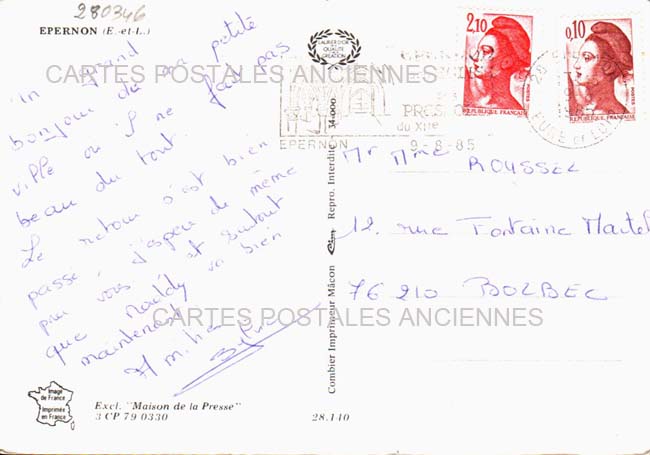 280346
EPERNON (E.-et-L.)
Un grand
bonjour de ma petite
ville où il ne fait pas
beau du tout.
Le retour s'est bien
passé, j'espère de même
pour vous et surtout
que va bien
maintenant.
CARTES POSTALES ANCIENNES
CARTES POSTALES ANCIENNES
LAURIER D'OR
DE LA
QUALITÉ
CRÉATION
Combier Imprimeur Mâcon Cim Repro. Interdite 34-000
EPERNON
du XIIe
9-8-85
2,10
REPUBLIQUE FRANÇAISE
POSTES
0,10
REPUBLIQUE FRANÇAISE
POSTES
EURE ET LOIR
Mr Mme ROUSSEL
12, rue Fontaine Martel
76210 BOLBEC
Image
de France
Imprimée
en France
Excl. "Maison de la Presse"
3 CP 79 0330
28.140